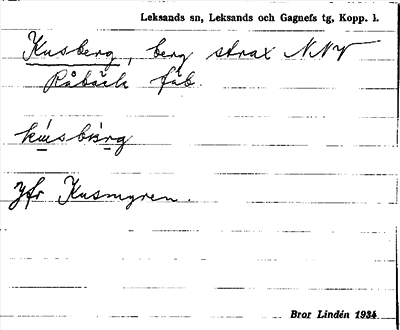 Leksands sn, Leksands och Gagnefs tg, Kopp. l.
Kusberg, berg strax NNV
Råbäck fäb.
Jfr Kusmyren.
Bror Lindén 1934